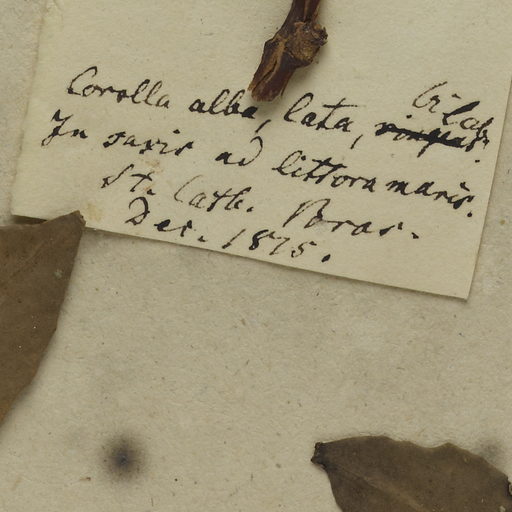 Corolla alba, lata, bilab.
In saxis ad littora maris.
St. Cath. Bras.
Dec. 1875.